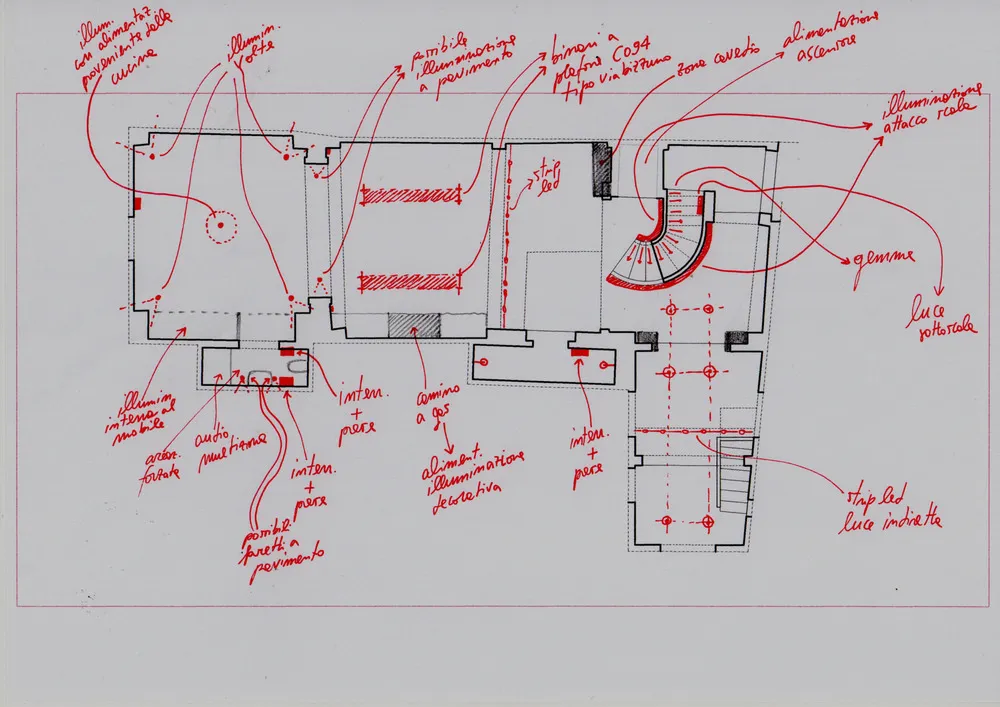 illum.
con alimentaz
proveniente dalla
cucina
illumin.
volte
possibile
illuminazione
a pavimento
binari a
plafone C094
tipo viabizzuno
zona cavedio
alimentazione
ascensore
illuminazione
attacco scala
strip
led
gemma
luce
sottoscala
illumin.
interna al
mobile
aeraz.
forzata
audio
multizona
inten.
+
prese
inten.
+
prese
possibili
faretti a
pavimento
camino
a gas
aliment.
illuminazione
decorativa
inten.
+
prese
strip led
luce indiretta